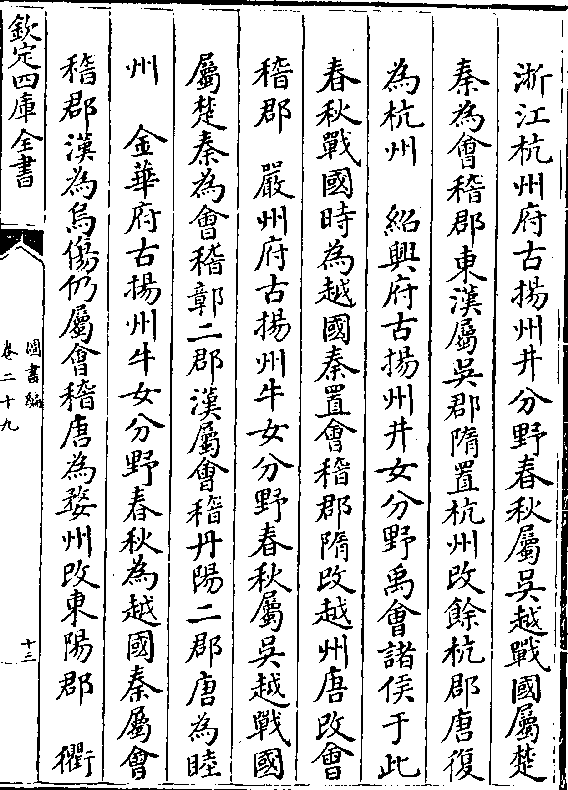 浙江杭州府古揚州井分野春秋屬吳越戰國屬楚
秦為會稽郡東漢屬吳郡隋置杭州改餘杭郡唐復
為杭州　紹興府古揚州井女分野禹會諸侯于此
春秋戰國時為越國秦置會稽郡隋改越州唐改會
稽郡　嚴州府古揚州牛女分野春秋屬吳越戰國
屬楚秦為會稽鄣二郡漢屬會稽丹陽二郡唐為睦
州　金華府古揚州牛女分野春秋為越國秦屬會
稽郡漢為烏傷仍屬會稽唐為婺州改東陽郡　衢
欽定四庫全書
圖書編
卷二十九
十三